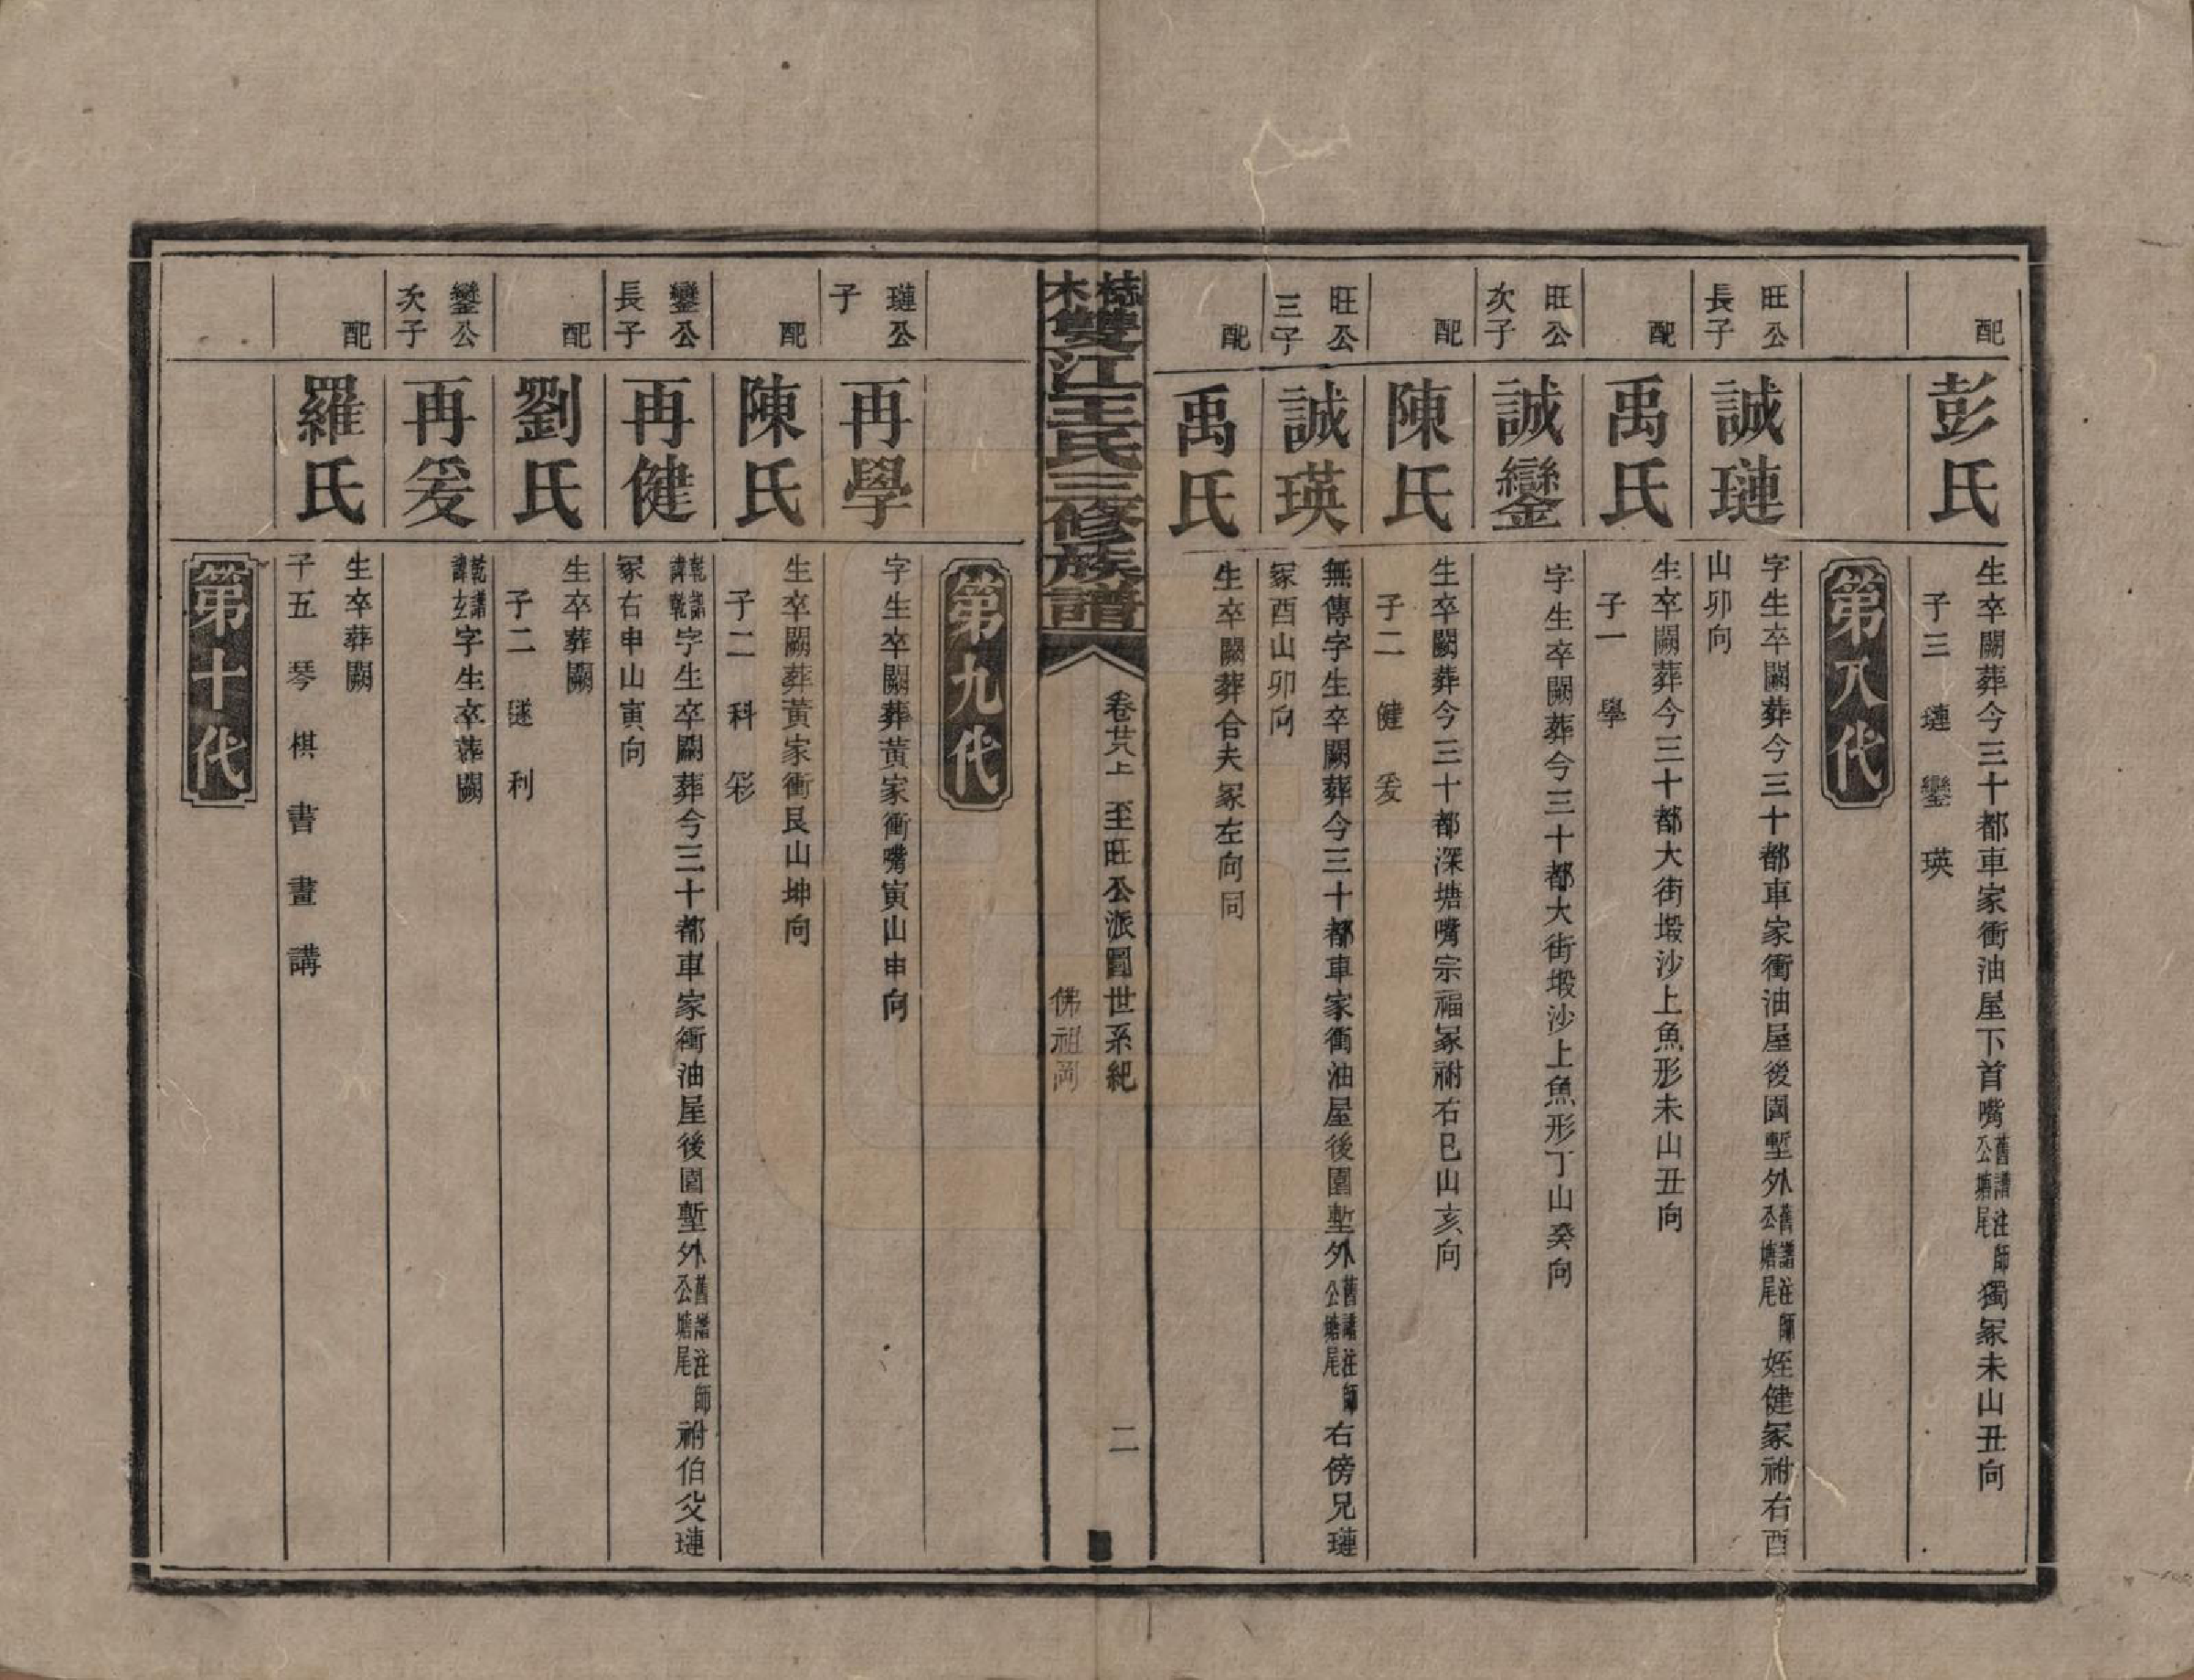 配
彭氏
生卒闕葬今三十都車家衝油屋下首嘴舊譜注師公塘尾獨冢未山丑向
子三 璉 鑾 瑛
第八代
旺公長子
誠璉
字生卒闕葬今三十都車家衝油屋後園塹外舊譜注師公塘尾姪健冢祔右酉
山卯向
配
禹氏
生卒闕葬今三十都大街塅沙上魚形未山丑向
子一 學
旺公次子
誠鑾
字生卒闕葬今三十都大街塅沙上魚形丁山癸向
配
陳氏
生卒闕葬今三十都深塘嘴宗福冢祔右巳山亥向
子二 健 爰
旺公三子
誠瑛
無傳字生卒闕葬今三十都車家衝油屋後園塹外舊譜注師公塘尾右傍兄璉
冢酉山卯向
配
禹氏
生卒闕葬合夫冢左向同
梽木雙江王氏三修族譜
卷廿八上 至旺公派圖世系紀
佛祖岡
二
第九代
璉公子
再學
字生卒闕葬黃家衝嘴寅山申向
配
陳氏
生卒闕葬黃家衝艮山坤向
子二 科 彩
鑾公長子
再健
乾譜諱乾字生卒闕葬今三十都車家衝油屋後園塹外舊譜注師公塘尾祔伯父璉
冢右申山寅向
配
劉氏
生卒葬闕
子二 毯 利
鑾公次子
再爰
乾譜諱玄字生卒葬闕
配
羅氏
生卒葬闕
子五 琴 棋 書 畫 講
第十代